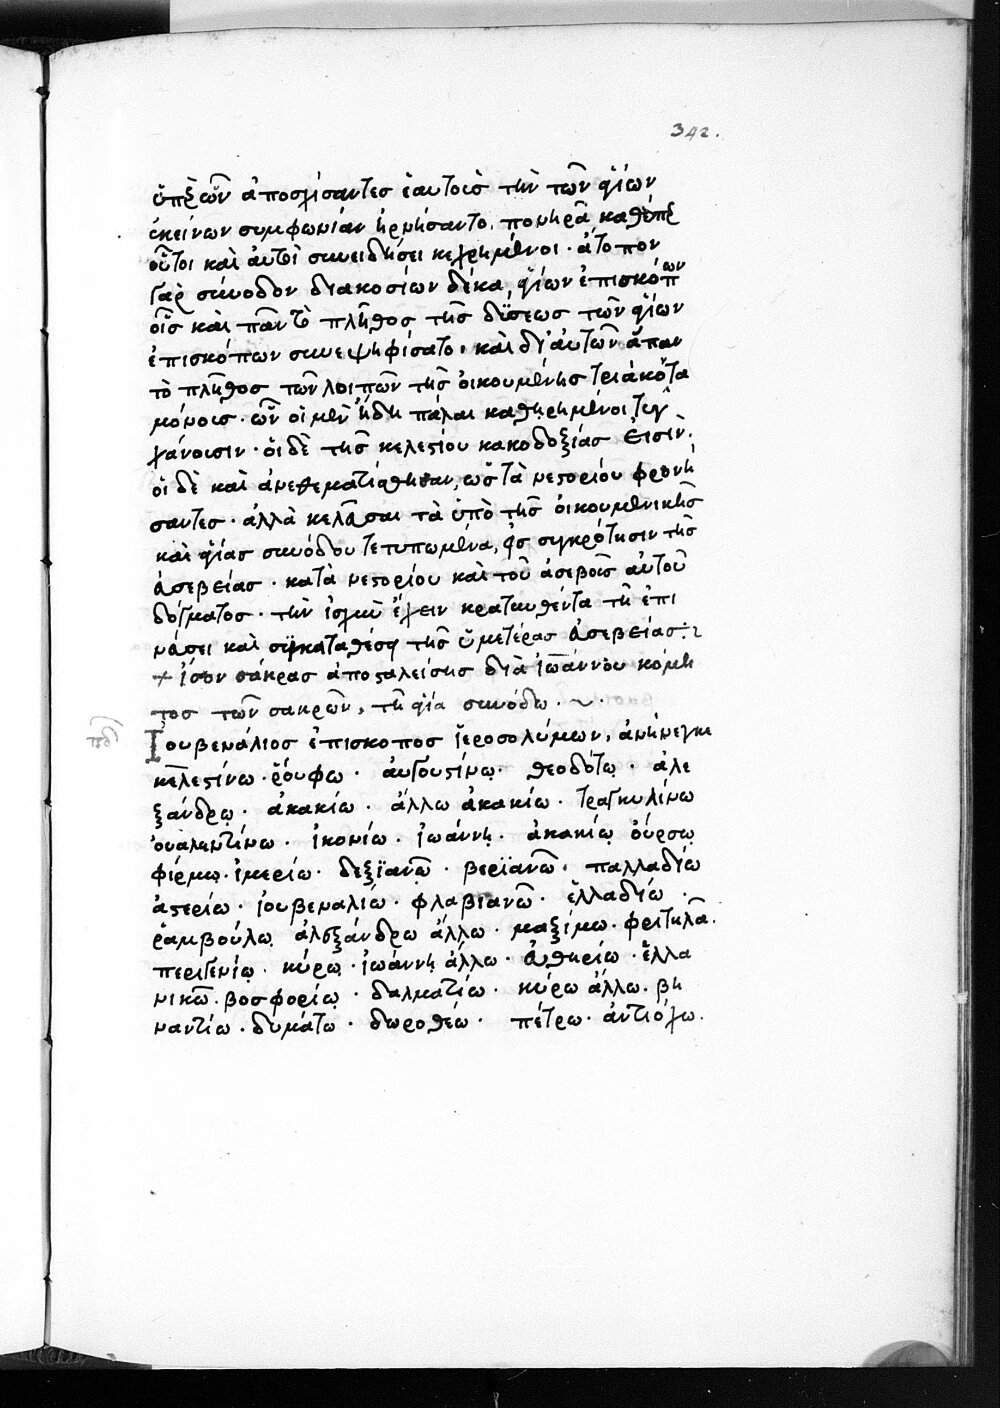 342.
ὑπὲρ ὧν ἀποσχίσαντες ἑαυτοὺς τὴν τῶν ἁγίων
ἐκείνων συμφωνίαν ἠρνήσαντο. πονηρᾶ καθάπερ
οὗτοι καὶ αὐτοὶ συνειδήσει κεχρημένοι · ἄτοπον
γὰρ σύνοδον διακοσίων δέκα, ἁγίων ἐπισκόπων
οἷς καὶ πᾶν τὸ πλῆθος τῆς δύσεως τῶν ἁγίων
ἐπισκόπων συνεψηφίσατο, καὶ δι' αὐτῶν ἅπαν
τὸ πλῆθος τῶν λοιπῶν τῆς οἰκουμένης τριάκοντα
μόνοις · ὧν οἱ μὲν ἤδη πάλαι καθῃρημένοι τυγ
χάνουσιν · οἱ δὲ τῆς κελεστίου κακοδοξίας εἰσιν ·
οἱ δὲ καὶ ἀνεθεματίσθησαν, ὡς τὰ νεστορίου φρονή
σαντες · ἀλλὰ κελεῦσαι τὰ ὑπὸ τῆς οἰκουμενικῆς
καὶ ἁγίας συνόδου τετυπωμένα, πρὸς συγκρότησιν τῆς
εὐσεβείας · κατὰ νεστορίου καὶ τοῦ ἀσεβοῦς αὐτοῦ
δόγματος · τὴν ἰσχὺν ἔχειν κραταιωθέντα τῇ ἐπι
νεύσει καὶ συγκαταθέσει τῆς ὑμετέρας εὐσεβείας :
+ ἴσον σάκρας ἀποσταλείσης διὰ ἰωάννου κόμη
τος τῶν σακρῶν, τῇ ἁγία συνόδω · ~ ·
Ἰουβενάλιος ἐπίσκοπος ἱεροσολύμων, ἀνήνεγκε
κελεστίνω · ῥούφω · αὐγουστίνω · θεοδότω · ἀλε
ξάνδρω · ἀκακίω · ἄλλω ἀκακίω · τραγκυλίνω
οὐαλεντίνω · ἰκονίω · ἰωάννῃ · ἀκακίω οὔρσω
φίρμω · ἱμερίω · δεξϊανῶ · βερϊανῶ · παλλαδίω
ἀστερίω · ἰουβεναλίω · φλαβιανῶ · ἑλλαδίω ·
ῥαμβούλω ἀλεξάνδρω ἄλλω · μαξίμω · φριτηλᾶ ·
περιγενίω · κύρω · ἰωάννῃ ἄλλω · εὐθηρίω · ἑλλα
νικῶ · βοσφορίω · δαλματίω · κύρω ἄλλω · βη
ναντίω · δυνάτω · δωροθέω · πέτρω · ἀντιόχω ·